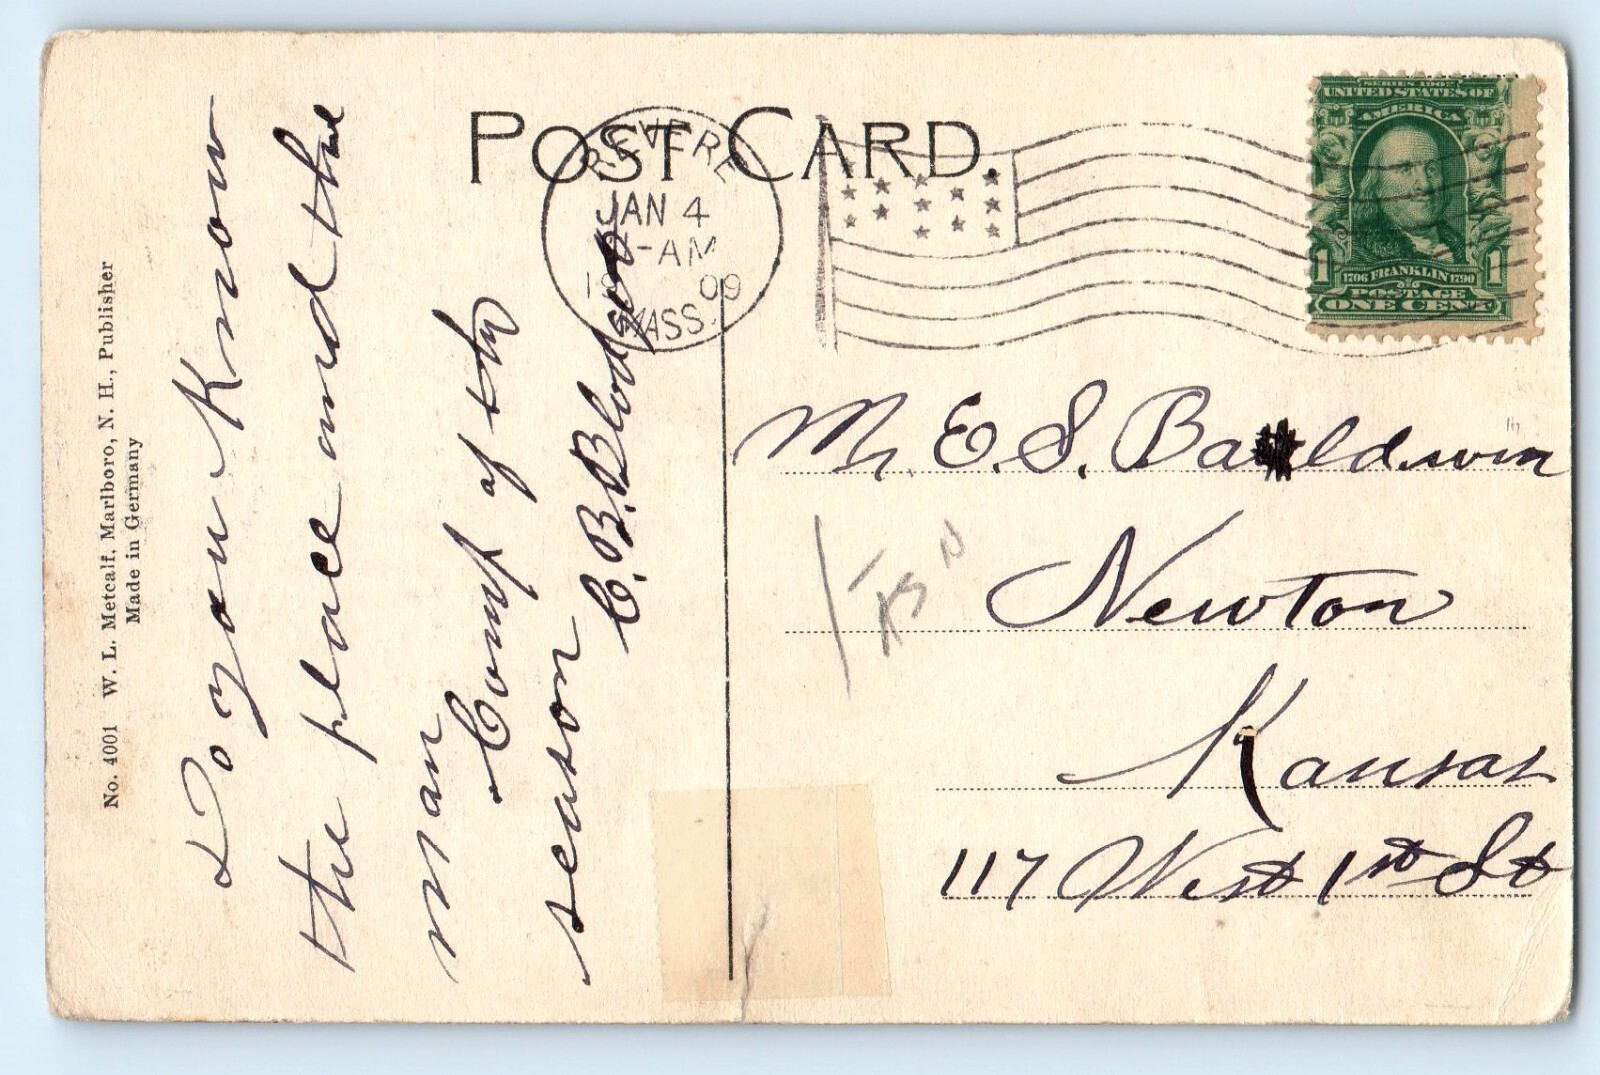 No. 4001 W. L. Metcalf, Marlboro, N. H., Publisher
Made in Germany
Do you Know
the place and the
man
Comp of the
season
C. B. Blodgett
POST CARD.
REVERE
JAN 4
-AM
1909
MASS.
SERIES 1902
UNITED STATES OF
AMERICA
1 1
1706 FRANKLIN 1790
POSTAGE
ONE CENT
Mr. E. S. Baldwin
Newton
Kansas
117 West 1st St